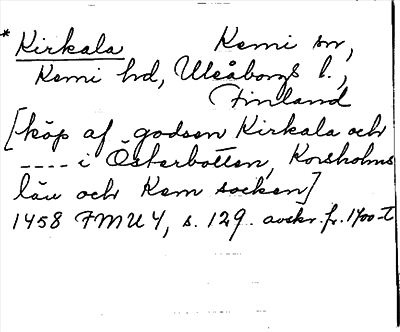 * Kirkala Kemi sn,
Kemi hd, Uleåborgs l.,
Finland
[köp af godsen Kirkala och
---- i Österbotten, Korsholms
län och Kem socken]
1458 FMU 4, s. 129. avskr. fr. 1700-t